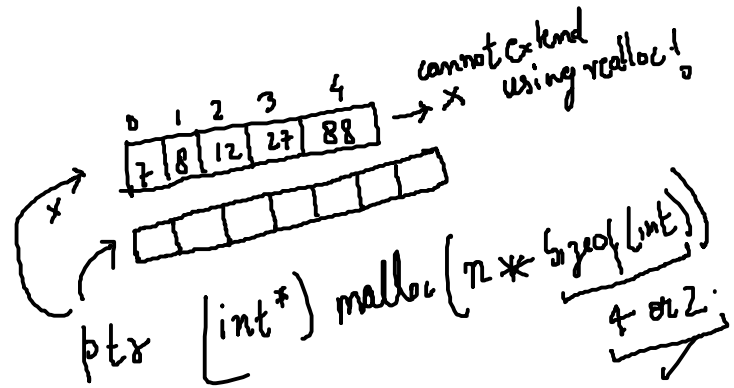 cannot extend
using realloc!
0 1 2 3 4
7 8 12 27 88
x
x
ptr (int*) malloc(n * sizeof(int))
4 or 2.